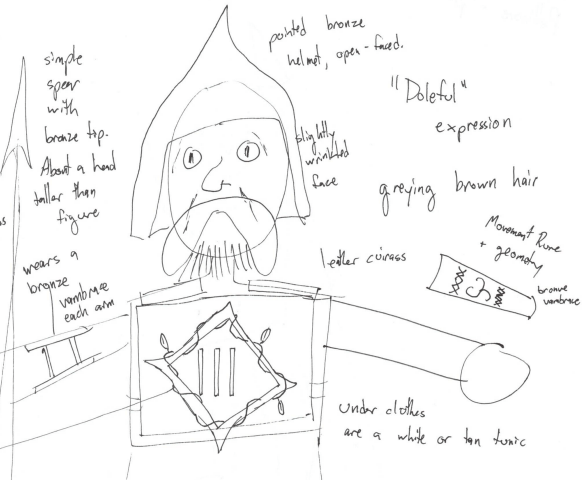 simple
spear
with
bronze tip.
About a head
taller than
figure
wears a
bronze
vambrace
each arm
pointed bronze
helmet, open-faced.
"Doleful"
expression
slightly
wrinkled
face
greying brown hair
leather cuirass
Movement Rune
+ geometry
bronze
vambrace
III
Under clothes
are a white or tan tunic